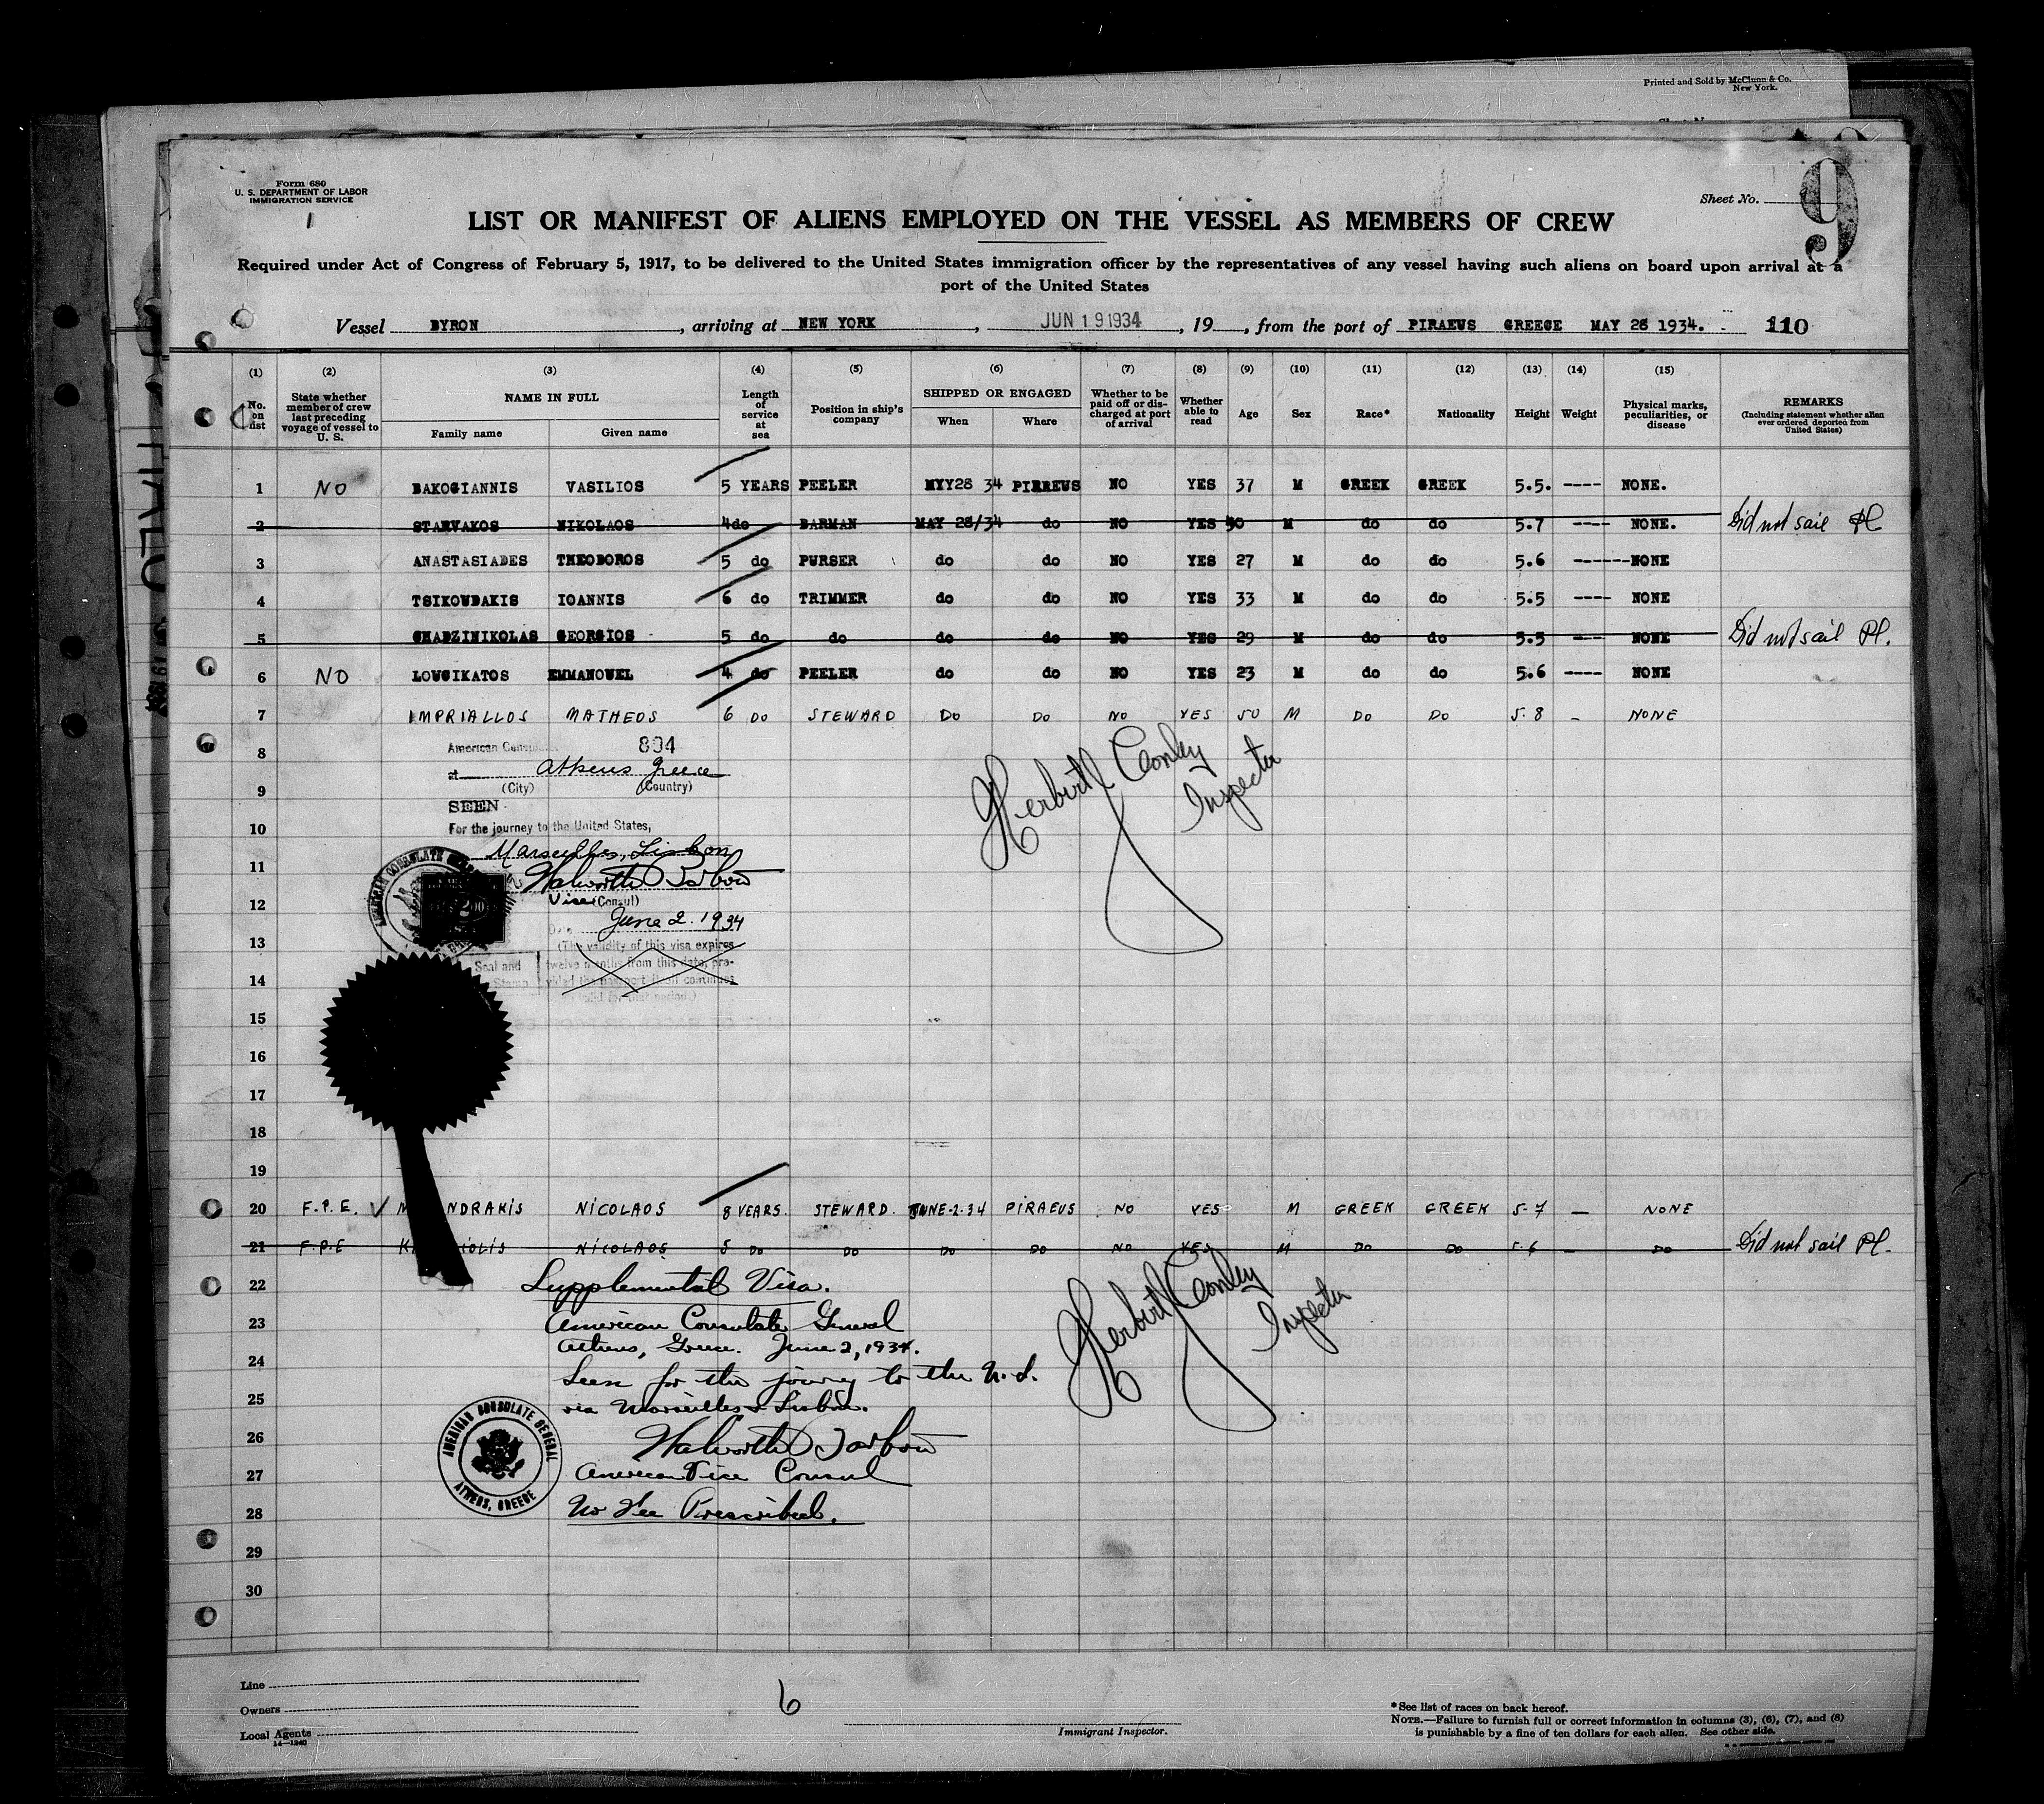 Printed and Sold by McClunn & Co.
New York.
Form 680
U. S. DEPARTMENT OF LABOR
IMMIGRATION SERVICE
1
Sheet No.
9
LIST OR MANIFEST OF ALIENS EMPLOYED ON THE VESSEL AS MEMBERS OF CREW
Required under Act of Congress of February 5, 1917, to be delivered to the United States immigration officer by the representatives of any vessel having such aliens on board upon arrival at a
port of the United States
Vessel BYRON, arriving at NEW YORK, JUN 19 1934, 19, from the port of PIRAEUS GREECE MAY 28 1934. 110
(1) (2) (3) (4) (5) (6) (7) (8) (9) (10) (11) (12) (13) (14) (15)
No. on list State whether member of crew last preceding voyage of vessel to U. S. NAME IN FULL Family name Given name Length of service at sea Position in ship's company SHIPPED OR ENGAGED When Where Whether to be paid off or discharged at port of arrival Whether able to read Age Sex Race* Nationality Height Weight Physical marks, peculiarities, or disease REMARKS (Including statement whether alien ever ordered deported from United States)
1 NO BAKOGIANNIS VASILIOS 5 YEARS PEELER MYY28 34 PIRREUS NO YES 37 M GREEK GREEK 5.5. ---- NONE.
2 STARVAKOS NIKOLAOS 4do BARMAN MAY 28/34 do NO YES 40 M do do 5.7 ---- NONE. Did not sail Pl
3 ANASTASIADES THEODOROS 5 do PURSER do do NO YES 27 M do do 5.6 ------NONE
4 TSIKOUDAKIS IOANNIS 6 do TRIMMER do do NO YES 33 M do do 5.5 ---- NONE
5 CHADZINIKOLAS GEORGIOS 5 do do do do NO YES 29 M do do 5.5 --- NONE Did not sail Pl.
6 NO LOUGIKATOS EMMANOUEL 4 do PEELER do do NO YES 23 M do do 5.6 ---- NONE
7 IMPRIALLOS MATHEOS 6 DO STEWARD DO DO NO YES 50 M DO DO 5.8 - NONE
8 American Consulate 804
at Athens Greece
9 (City) (Country)
SEEN
10 For the journey to the United States,
Marseilles, Lisbon
11 Walworth Barbour
12 Vice (Consul)
June 2. 1934
13 (The validity of this visa expires
twelve months from this date, pro-
14 vided the passport itself continues
valid for that period.)
Seal and
Stamp
Herbert Conley
Inspector
15
16
17
18
19
20 F.P.E. NDRAKIS NICOLAOS 8 YEARS. STEWARD. JUNE-2-34 PIRAEUS NO YES M GREEK GREEK 5-7 - NONE
21 F.P.E NICOLAOS 5 DO DO DO DO NO YES M DO DO 5.6 - DO Did not sail Pl.
22 Supplemental Visa.
23 American Consulate General
Athens, Greece. June 2, 1934.
24 Seen for the journey to the U.S.
25 via Marseilles & Lisbon.
26 Walworth Barbour
27 American Vice Consul
28 No Fee Prescribed.
29
30
AMERICAN CONSULATE GENERAL
ATHENS, GREECE
Herbert Conley
Inspector
Line
Owners
Local Agents
14-1240
6
Immigrant Inspector.
*See list of races on back hereof.
NOTE.—Failure to furnish full or correct information in columns (3), (6), (7), and (8)
is punishable by a fine of ten dollars for each alien. See other side.